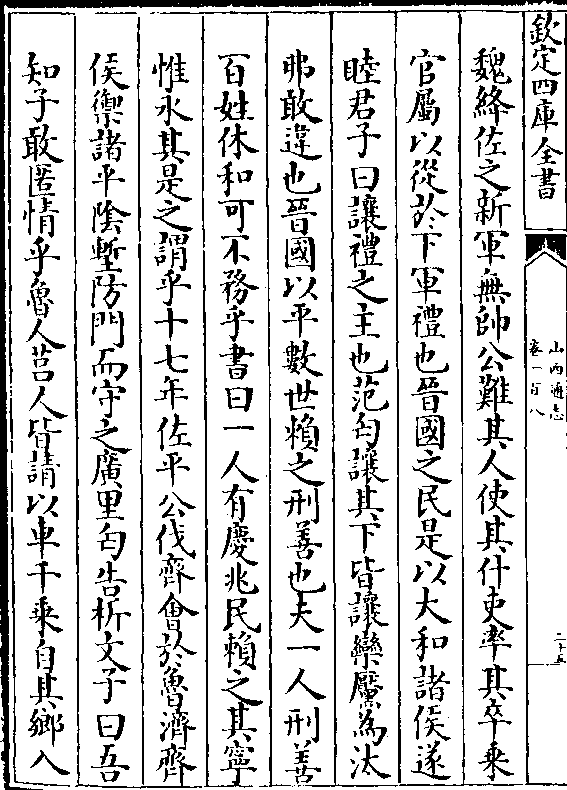 欽定四庫全書
山西通志
卷一百八
二十五
魏絳佐之新軍無帥公難其人使其什吏率其卒乗
官屬以從於下軍禮也晉國之民是以大和諸侯遂
睦君子曰讓禮之主也范匄讓其下皆讓欒黶為汰
弗敢違也晉國以平數世賴之刑善也夫一人刑善
百姓休和可不務乎書曰一人有慶兆民賴之其寧
惟永其是之謂乎十七年佐平公伐齊會於魯濟齊
侯禦諸平隂塹防門而守之廣里匄告析文子曰吾
知子敢匿情乎魯人莒人皆請以車千乘自其鄉入